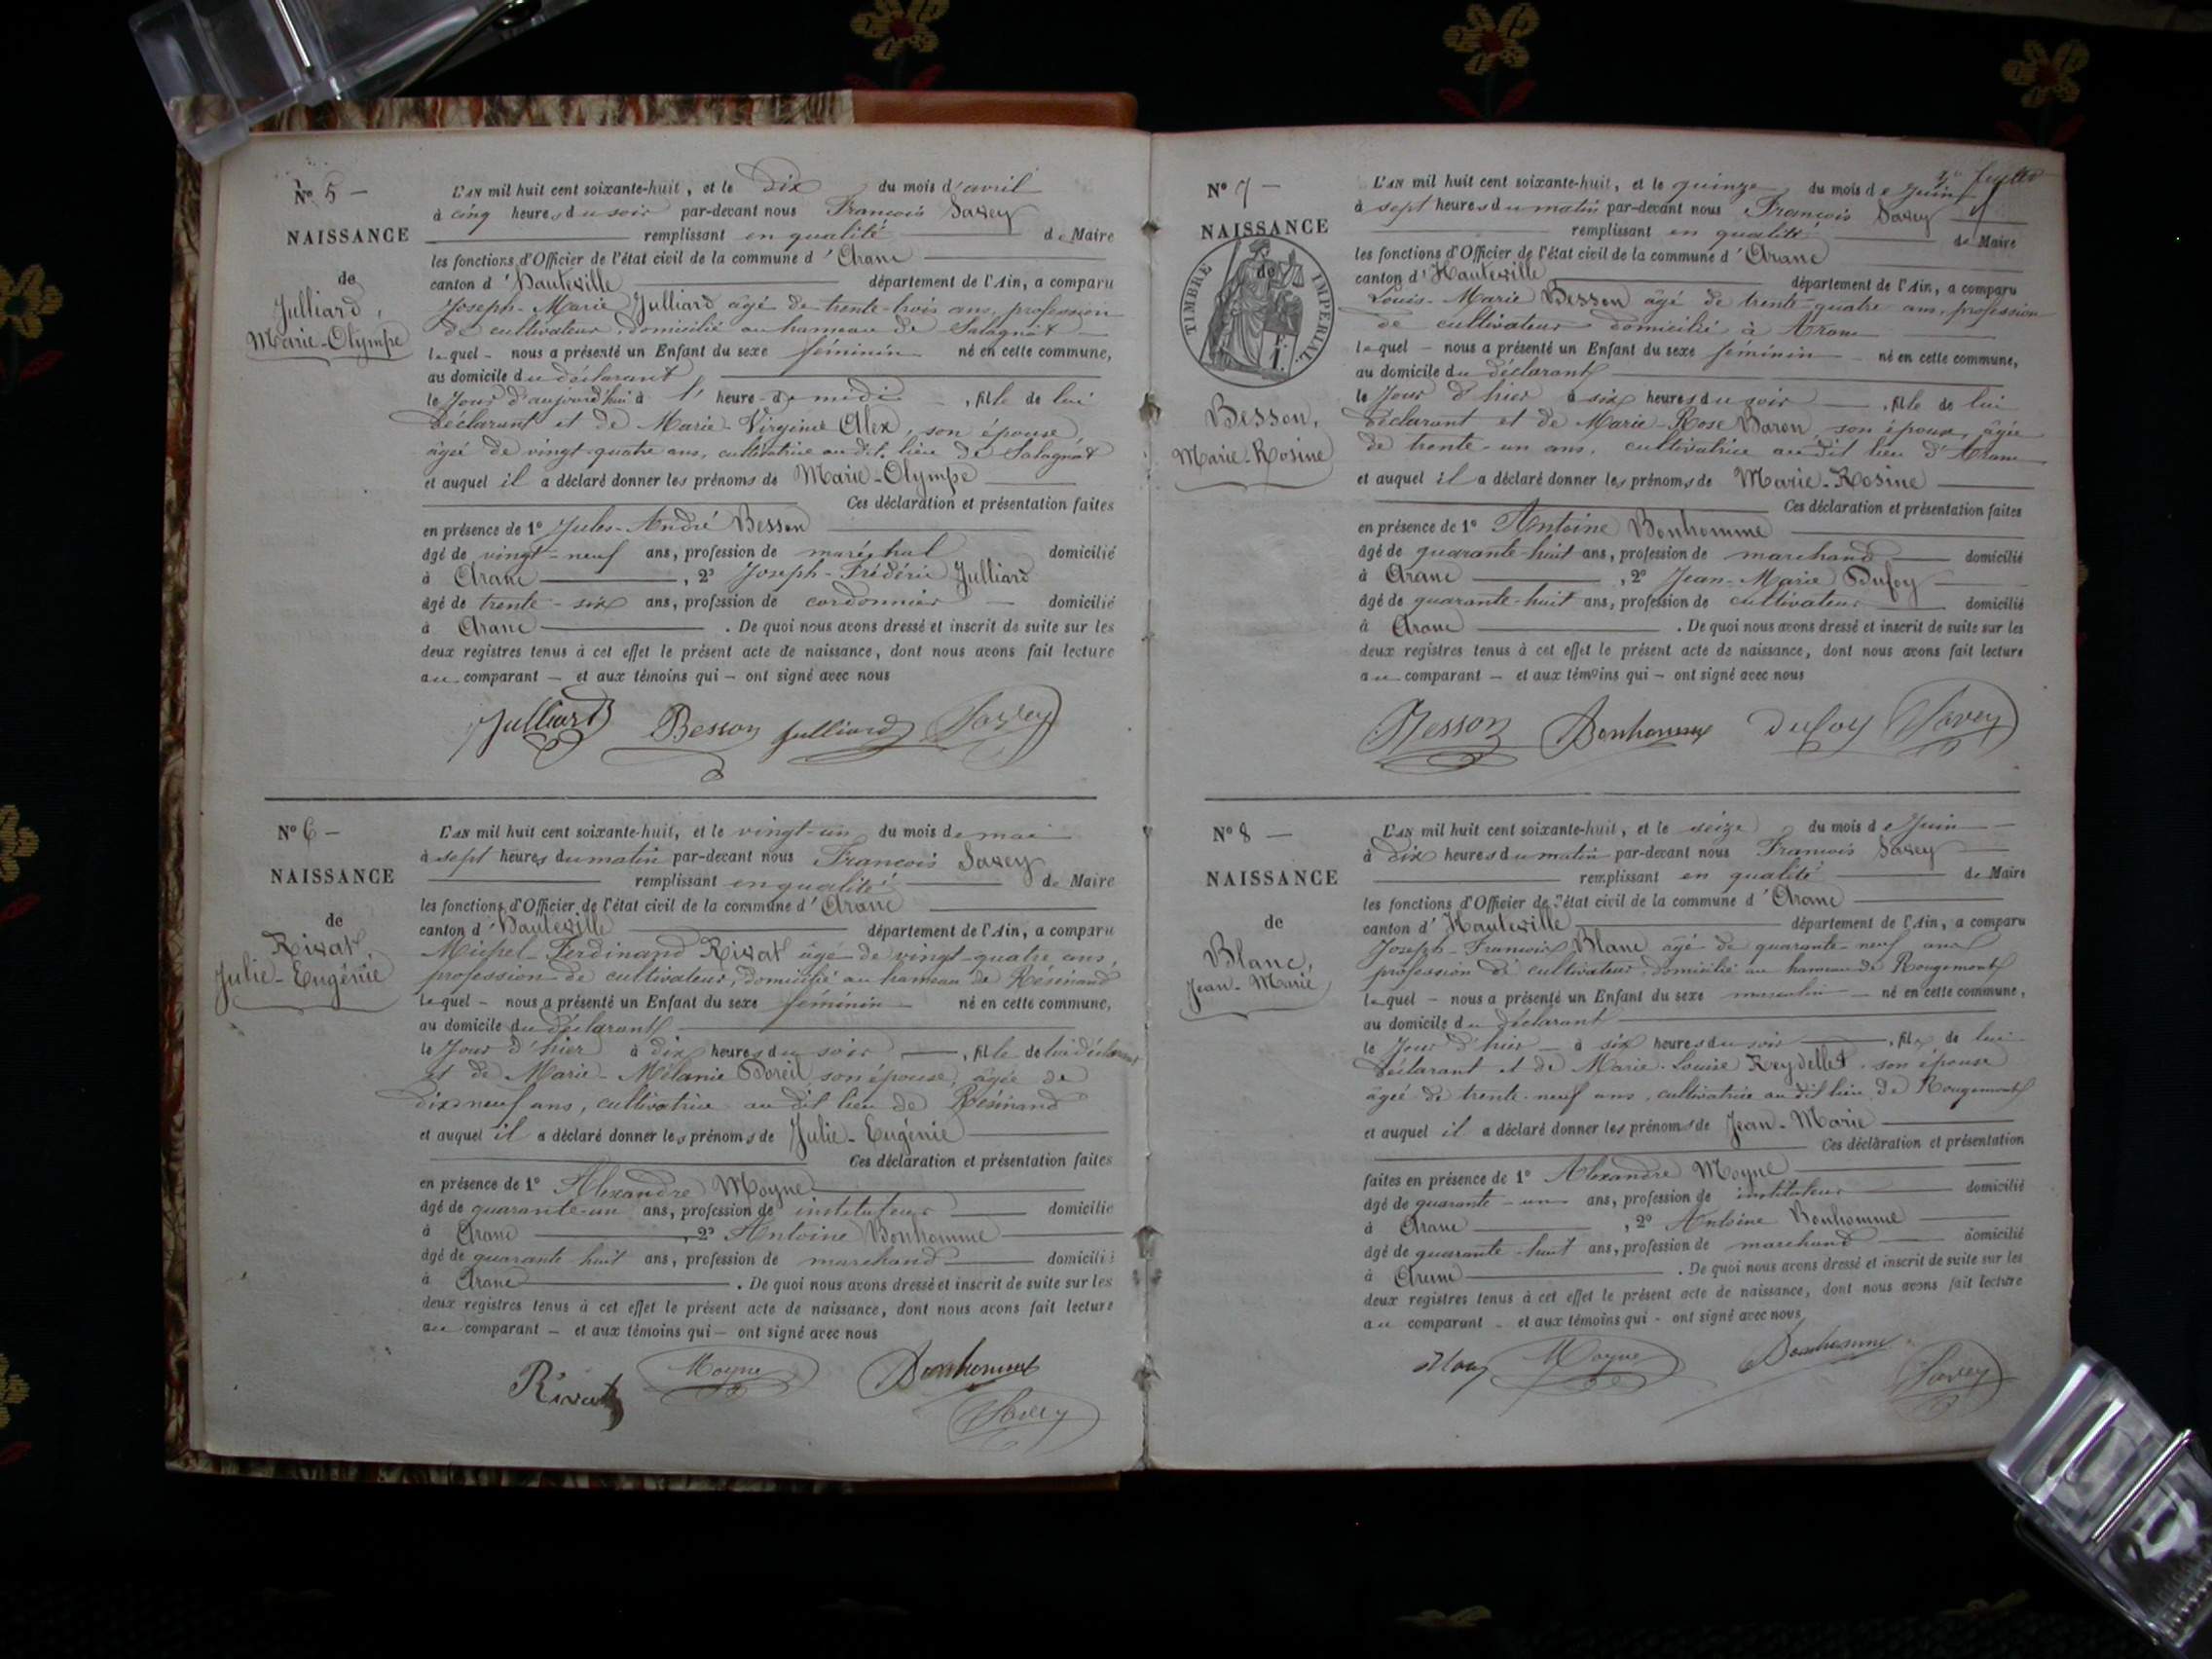 N° 5 —
NAISSANCE
de
Julliard,
Marie-Olympe
L'AN mil huit cent soixante-huit, et le dix du mois d'avril
à cinq heures du soir par-devant nous François Savey
remplissant en qualité de Maire
les fonctions d'Officier de l'état civil de la commune d'Aranc
canton d'Hauteville département de l'Ain, a comparu
Joseph-Marie Julliard âgé de trente-trois ans, profession
de cultivateur, domicilié au hameau de Salagnat
lequel — nous a présenté un Enfant du sexe féminin né en cette commune,
au domicile du déclarant
le Jour d'aujourd'hui à l' heure de midi —, fille de lui
déclarant et de Marie-Virginie Alex, son épouse,
âgée de vingt-quatre ans, cultivatrice au dit lieu de Salagnat
et auquel il a déclaré donner les prénoms de Marie-Olympe
Ces déclaration et présentation faites
en présence de 1° Jules-André Besson
âgé de vingt-neuf ans, profession de maréchal domicilié
à Aranc, 2° Joseph-Frédéric Julliard
âgé de trente-six ans, profession de cordonnier — domicilié
à Aranc. De quoi nous avons dressé et inscrit de suite sur les
deux registres tenus à cet effet le présent acte de naissance, dont nous avons fait lecture
au comparant — et aux témoins qui — ont signé avec nous
Julliard Besson Julliard Savey
N° 6 —
NAISSANCE
de
Rivat,
Julie-Eugénie
L'AN mil huit cent soixante-huit, et le vingt-un du mois de mai
à sept heures du matin par-devant nous François Savey
remplissant en qualité de Maire
les fonctions d'Officier de l'état civil de la commune d'Aranc
canton d'Hauteville département de l'Ain, a comparu
Michel-Ferdinand Rivat âgé de vingt-quatre ans,
profession de cultivateur, domicilié au hameau de Résinand
lequel — nous a présenté un Enfant du sexe féminin né en cette commune,
au domicile du déclarant
le Jour d'hier à dix heures du soir —, fille de lui déclarant
et de Marie-Mélanie Boreil son épouse, âgée de
dix-neuf ans, cultivatrice au dit lieu de Résinand
et auquel il a déclaré donner les prénoms de Julie-Eugénie
Ces déclaration et présentation faites
en présence de 1° Alexandre Moyne
âgé de quarante-un ans, profession de instituteur domicilié
à Aranc, 2° Antoine Bonhomme
âgé de quarante huit ans, profession de marchand domicilié
à Aranc. De quoi nous avons dressé et inscrit de suite sur les
deux registres tenus à cet effet le présent acte de naissance, dont nous avons fait lecture
au comparant — et aux témoins qui — ont signé avec nous
Rivat Moyne Bonhomme
Savey
N° 7 —
NAISSANCE
de
TIMBRE IMPERIAL.
Besson,
Marie-Rosine
L'AN mil huit cent soixante-huit, et le quinze du mois de Juin
à sept heures du matin par-devant nous François Savey
remplissant en qualité de Maire
les fonctions d'Officier de l'état civil de la commune d'Aranc
canton d'Hauteville département de l'Ain, a comparu
Louis-Marie Besson âgé de trente-quatre ans, profession
de cultivateur domicilié à Aranc
lequel — nous a présenté un Enfant du sexe féminin né en cette commune,
au domicile du déclarant
le Jour d'hier à six heures du soir —, fille de lui
déclarant et de Marie-Rose Baron, son épouse, âgée
de trente-un ans, cultivatrice au dit lieu d'Aranc
et auquel il a déclaré donner les prénoms de Marie-Rosine
Ces déclaration et présentation faites
en présence de 1° Antoine Bonhomme
âgé de quarante-huit ans, profession de marchand domicilié
à Aranc, 2° Jean-Marie Dufoy
âgé de quarante-huit ans, profession de cultivateur domicilié
à Aranc. De quoi nous avons dressé et inscrit de suite sur les
deux registres tenus à cet effet le présent acte de naissance, dont nous avons fait lecture
au comparant — et aux témoins qui — ont signé avec nous
Besson Bonhomme Dufoy Savey
N° 8 —
NAISSANCE
de
Blanc,
Jean-Marie
L'AN mil huit cent soixante-huit, et le seize du mois de Juin
à dix heures du matin par-devant nous François Savey
remplissant en qualité de Maire
les fonctions d'Officier de l'état civil de la commune d'Aranc
canton d'Hauteville département de l'Ain, a comparu
Joseph-François Blanc âgé de quarante-neuf ans
profession de cultivateur domicilié au hameau de Rougemont
lequel — nous a présenté un Enfant du sexe masculin né en cette commune,
au domicile du déclarant
le Jour d'hier — à six heures du soir —, fils de lui
déclarant et de Marie-Louise Reydellet, son épouse
âgée de trente-neuf ans, cultivatrice au dit lieu de Rougemont
et auquel il a déclaré donner les prénoms de Jean-Marie
Ces déclaration et présentation
faites en présence de 1° Alexandre Moyne
âgé de quarante-un ans, profession de instituteur domicilié
à Aranc, 2° Antoine Bonhomme
âgé de quarante-huit ans, profession de marchand domicilié
à Aranc. De quoi nous avons dressé et inscrit de suite sur les
deux registres tenus à cet effet le présent acte de naissance, dont nous avons fait lecture
au comparant — et aux témoins qui — ont signé avec nous
Moyne Bonhomme
Savey